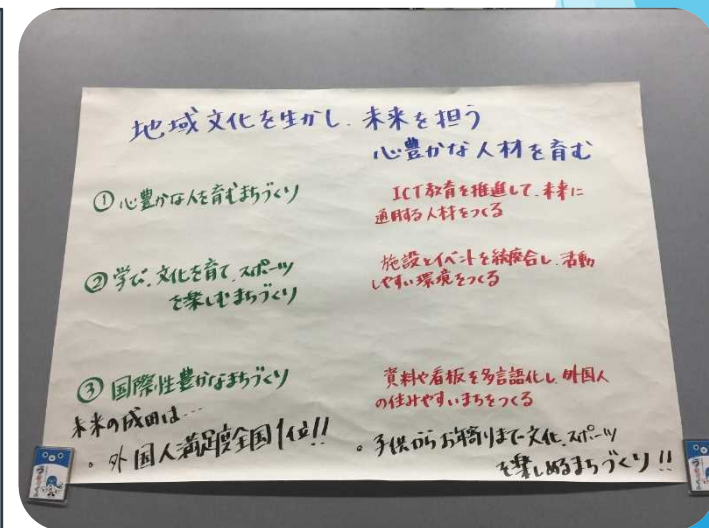 地域文化を生かし、未来を担う
心豊かな人材を育む
①心豊かな人を育むまちづくり
ICT教育を推進して、未来に
通用する人材をつくる
②学び、文化を育て、スポーツ
を楽しむまちづくり
施設とイベントを統廃合し、活動
しやすい環境をつくる
③国際性豊かなまちづくり
資料や看板を多言語化し、外国人
の住みやすいまちをつくる
未来の成田は…
。外国人満足度全国1位!!
。子供からお年寄りまで文化、スポーツ
を楽しめるまちづくり!!